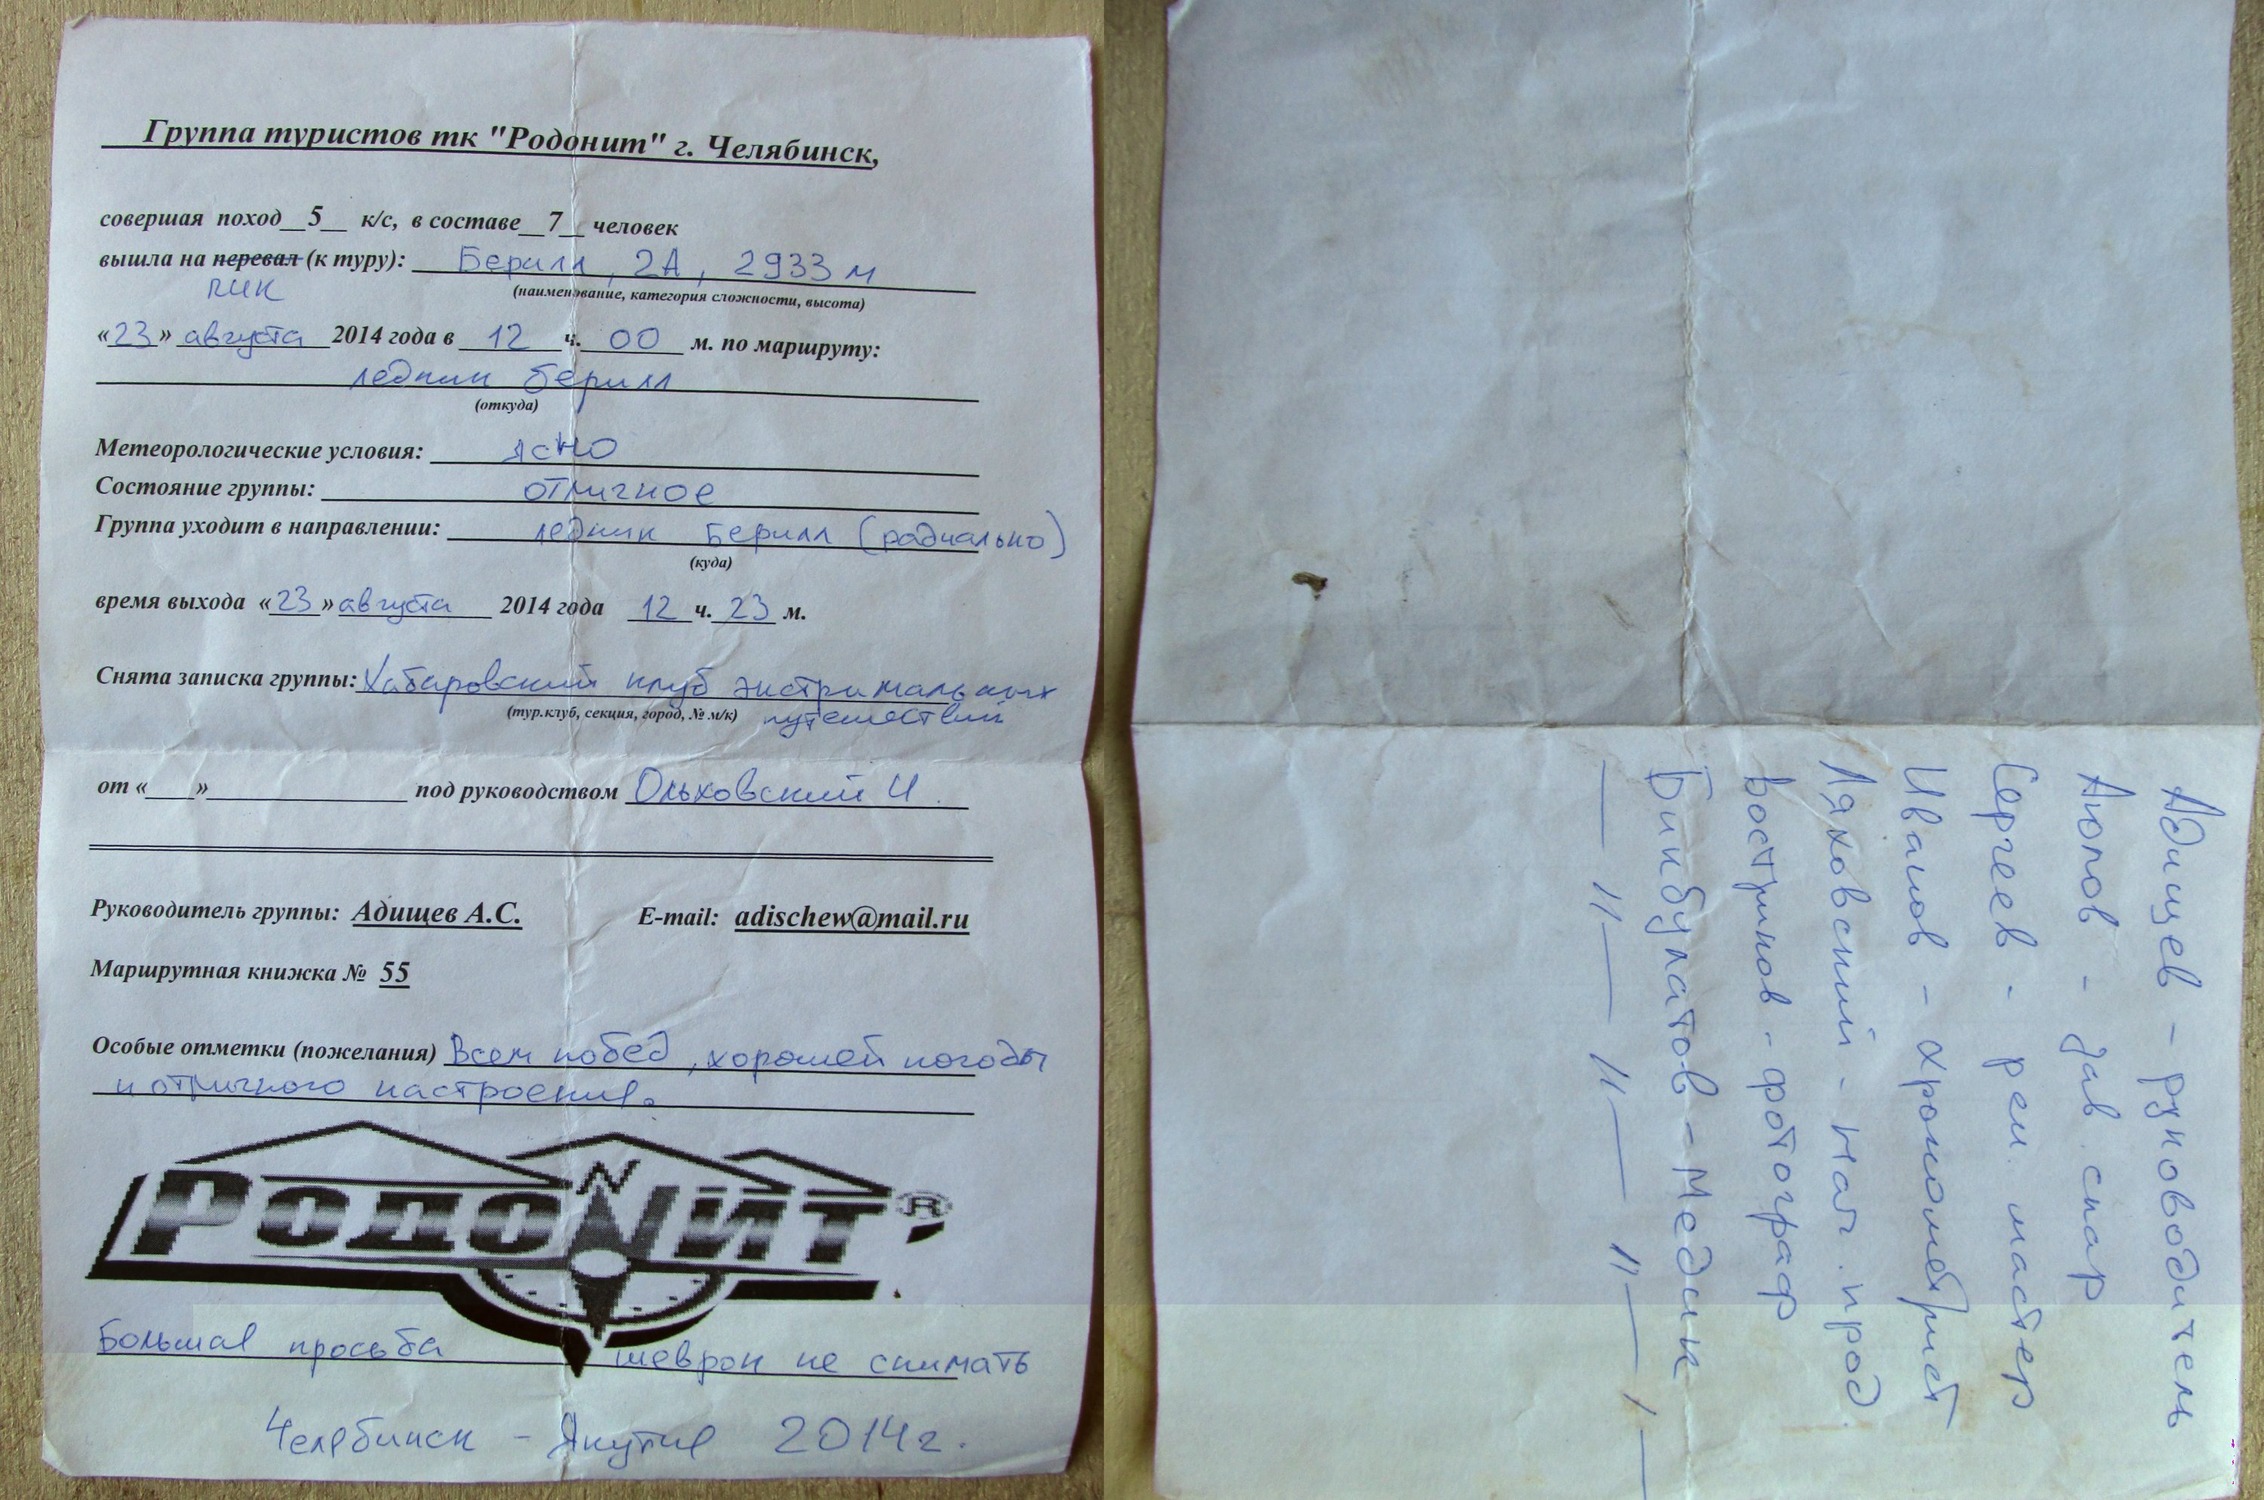 Группа туристов тк "Родонит" г. Челябинск,
совершая поход 5 к/с, в составе 7 человек
вышла на перевал (к туру): Берилл, 2А, 2933 м
пик
(наименование, категория сложности, высота)
«23» августа 2014 года в 12 ч. 00 м. по маршруту:
ледник Берилл
(откуда)
Метеорологические условия: ясно
Состояние группы: отличное
Группа уходит в направлении: ледник Берилл (радиально)
(куда)
время выхода «23» августа 2014 года 12 ч. 23 м.
Снята записка группы: Хабаровский клуб экстримальных
(тур.клуб, секция, город, № м/к) путешествий
от «___»____________ под руководством Ольховский И.
Руководитель группы: Адищев А.С. E-mail: adischew@mail.ru
Маршрутная книжка № 55
Особые отметки (пожелания) Всем побед, хорошей погоды
и отличного настроения.
РодоNит ®
N
Большая просьба шеврон не снимать
Челябинск - Якутия 2014г.
Адищев - руководитель
Аюпов - зав. снар
Сергеев - рем. мастер
Иванов - хронометрист
Ляховский - нач. прод
Востриков - фотограф
Бикбулатов - Медик
— // — // — // — / —